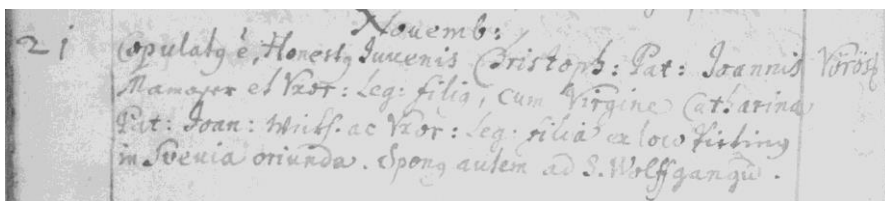 Novemb:
21 Copulatg è, Honestg Juvenis Christoph: Pat: Joannis Vörösz
Mamoser et Vxor: Leg: filig, cum Virgine Catharina
Pat: Joan: ac Vxor: Leg: filia ex loco
in Svevia oriunda. Spong autem ad S. Wolffgangū.